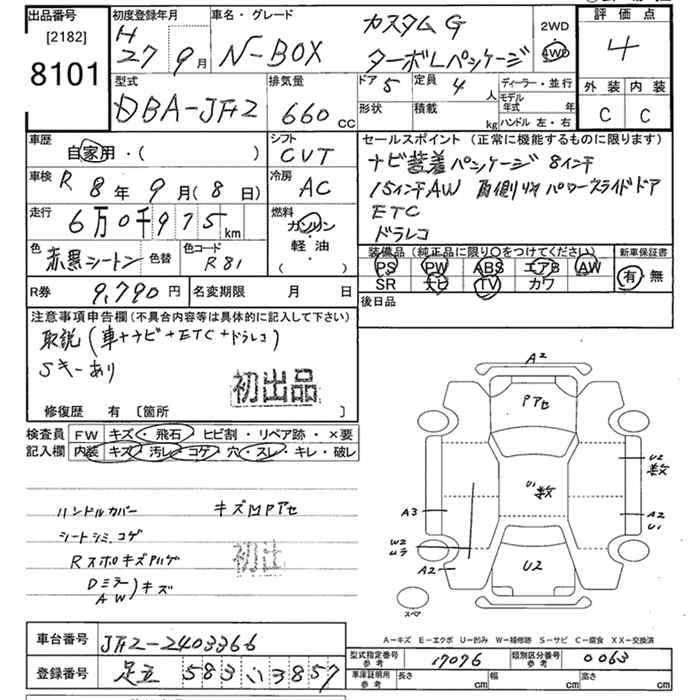 出品番号
[2182]
8101
初度登録年月
H 27 9月
車名・グレード
N-BOX
カスタム G
ターボLパッケージ
2WD
4WD
評価点
4
外装 内装
C C
型式
DBA-JF2
排気量
660 cc
ドア 5
定員 4 人
形状
積載 kg
ディーラー・並行
モデル年式 年
ハンドル 左・右
車歴
自家用・( )
シフト
CVT
車検 R 8年 9月 (8日)
冷房
AC
走行 6万0千975km
燃料
ガソリン
軽・油
( )
色 赤黒シートン 色替
色コード
R81
セールスポイント (正常に機能するものに限ります)
ナビ装着パッケージ 8インチ
15インチAW 両側リヤパワースライドドア
ETC
ドラレコ
装備品 (純正品に限り○をつけてください)
PS PW ABS エアB AW
SR ナビ TV カワ
新車保証書
有・無
後日品
R券 9,790円
名変期限 月 日
注意事項申告欄 (不具合内容等は具体的に記入して下さい)
取説(車+ナビ+ETC+ドラレコ)
Sキーあり
初出品
修復歴 有 [箇所 ]
検査員記入欄
FW キズ・飛石・ヒビ割・リペア跡・×要
内装 キズ・汚レ・コゲ・穴・スレ・キレ・破レ
ハンドルカバー キズMPアセ
シートシミ、コゲ
RスポキズPハゲ
Dミラー
AW )キズ
初出
A2
Pアセ
U2
数
U1
数
A3
A2
U1
W2
A2
U2
スペア
A-キズ E-エクボ U-凹み W-補修跡 S-サビ C-腐食 XX-交換済
車台番号 JF2-2403366
登録番号 足立 583 い 3857
型式指定番号 参考 17076
類別区分番号 参考 0063
車庫証明用 参考 長さ cm 幅 cm 高さ cm